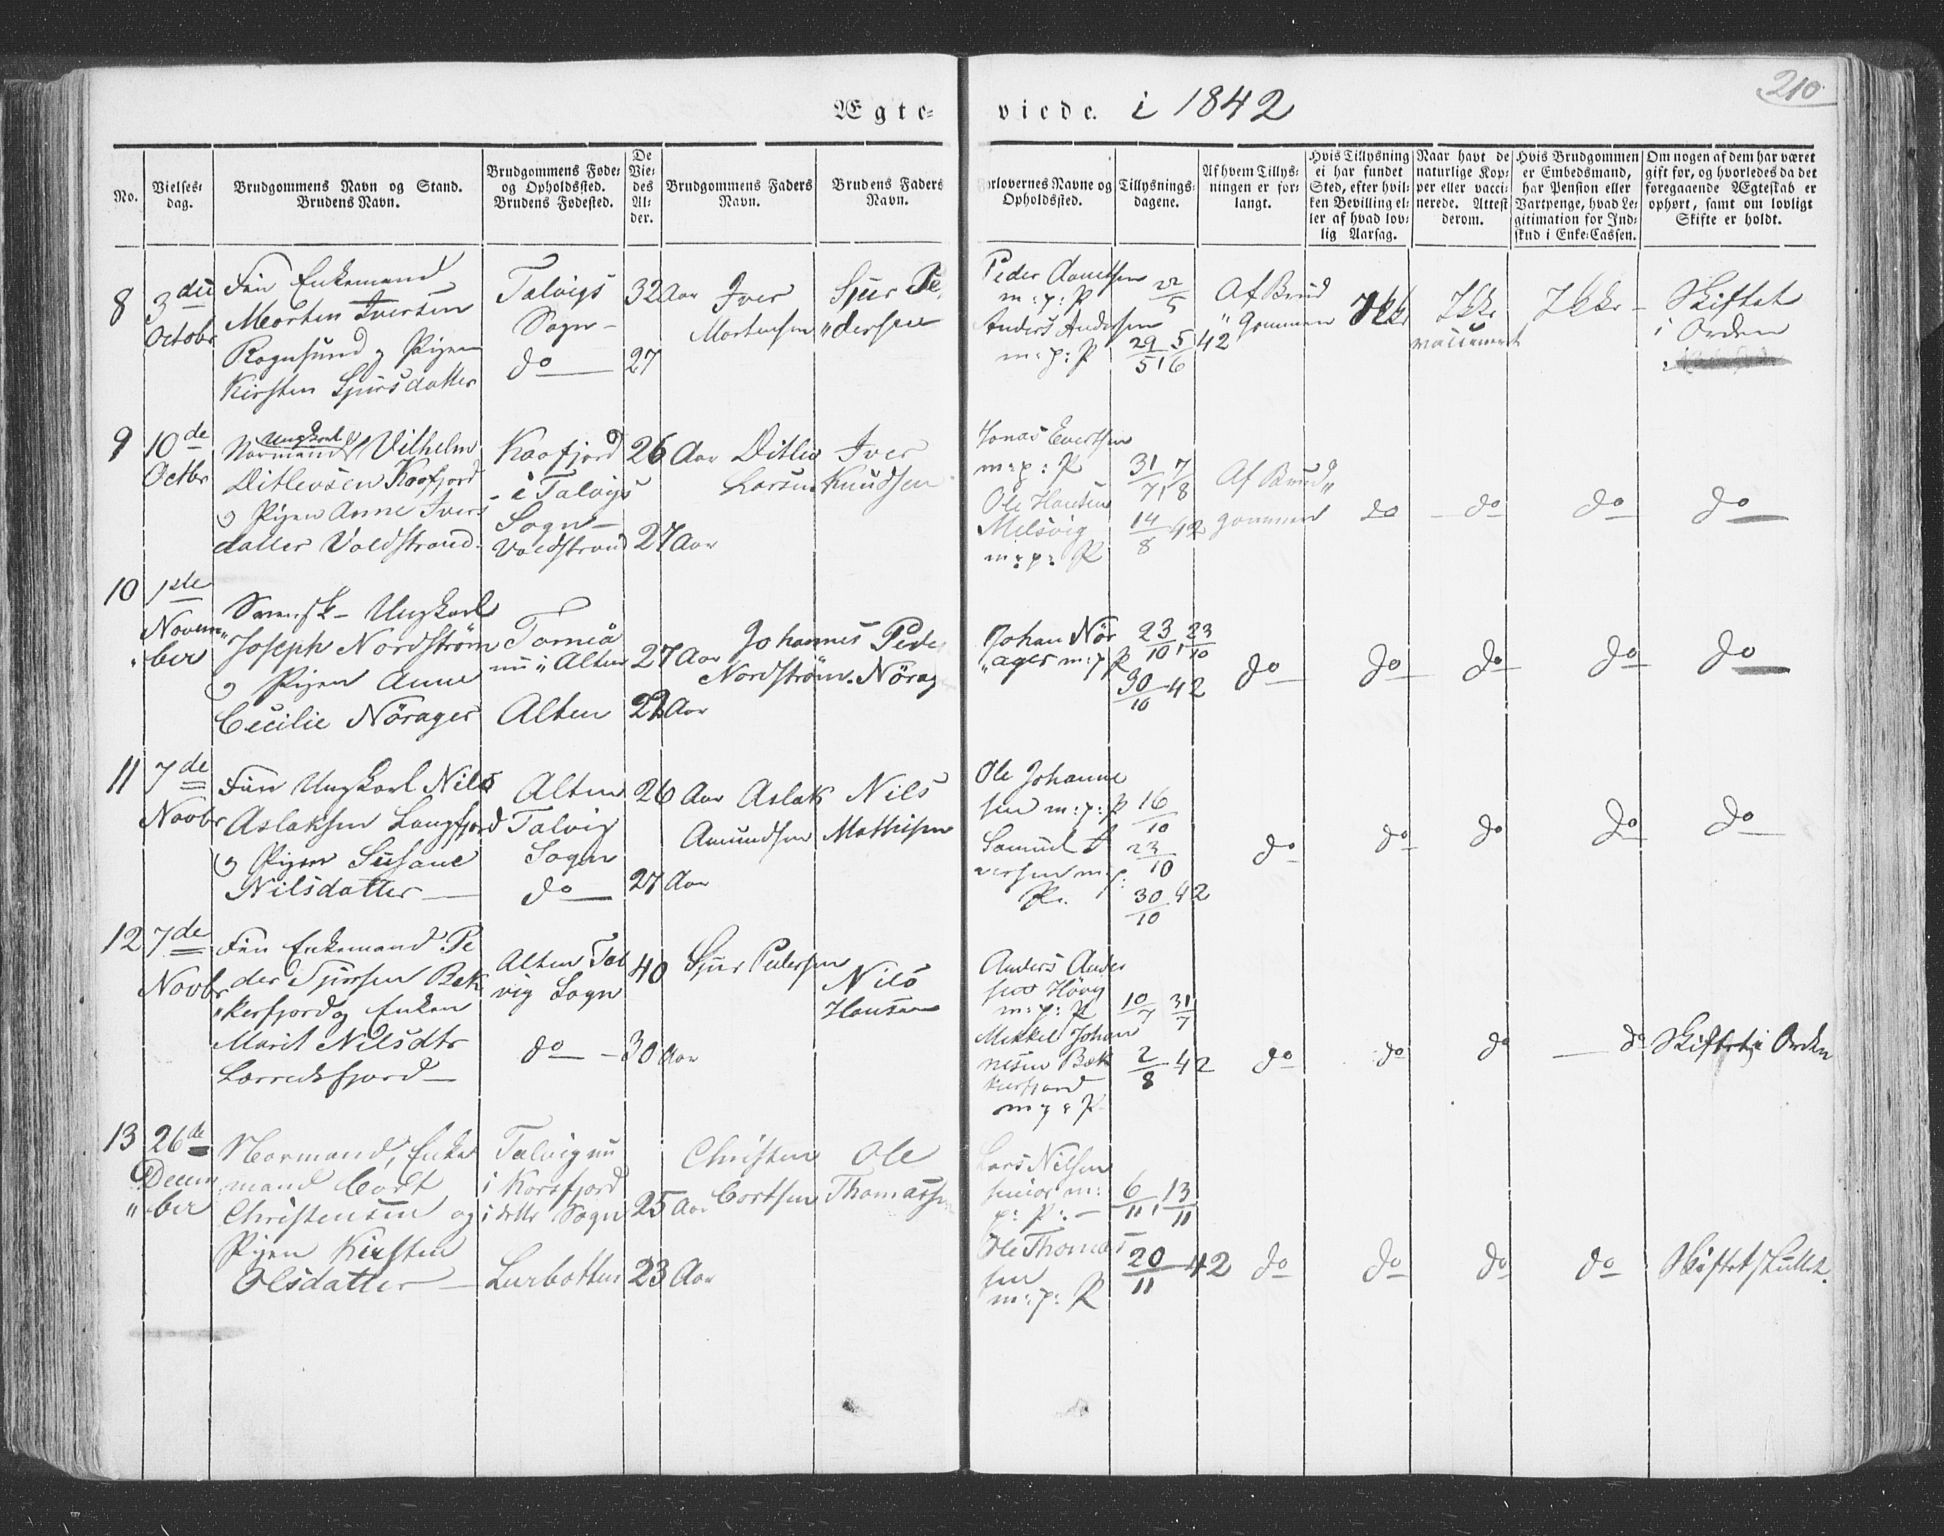 Ægte-
viede. i 1842
210
No.
Vielses-
dag.
Brudgommens Navn og Stand.
Brudens Navn.
Brudgommens Føde-
og Opholdssted.
Brudens Fødested.
De
Vie-
des
Al-
der.
Brudgommens Faders
Navn.
Brudens Faders
Navn.
Forlovernes Navne og
Opholdssted.
Tillysnings-
dagene.
Af hvem Tillys-
ningen er for-
langt.
Hvis Tillysning
ei har fundet
Sted, efter hvil-
ken Bevilling el-
ler af hvad lov-
lig Aarsag.
Naar havt de
naturlige Kop-
per eller vacci-
nerede. Attest
derom.
Hvis Brudgommen
er Embedsmand,
har Pension eller
Vartpenge, hvad Le-
gitimation for Ind-
skud i Enke-Cassen.
Om nogen af dem har været
gift før, og hvorledes da det
foregaaende Ægteskab er
ophørt, samt om lovligt
Skifte er holdt.
8
3die
Octobr
Fin Enkemand
Morten Iversen
Rognsund og Pigen
Kirsten Sjursdatter
Talvigs
Sogn
do
32 Aar
27
Iver
Mortensen
Sjur Pe
"dersen
Peder
m: p: P
Anders Andersen
m: p: P
22/5
29/5, 5/6 42
Af Brud
"gommen
Ikke
Ikke
vaccineret
Ikke
Skiftet
i Orden
9
10de
Octbr
Ungkarl
Normand Vilhelm
Ditlevsen Kaafjord
og Pigen Anne Ivers
datter Voldstrand
Kaafjord
i Talvigs
Sogn
Voldstrand
26 Aar
27 Aar
Ditlev
Larsen
Iver
Knudsen
Jonas Evertsen
m: p: P
Ole Hansen
Melsvig
m: p: P
31/7, 7/8
14/8 42
Af Brud"
gommen
do
do
do
do
10
1ste
Novem"
"ber
Svensk Ungkarl
Joseph Nordstrøm
og Pigen Anne
Cecilie Nörager
Torneå
nu i Alten
Alten
27 Aar
22 Aar
Johannes
Nordström
Peder
Nörag
Johan Nör
"ager m: p: P
23/10, 23/10
30/10 42
do
do
do
do
do
11
7de
Novbr
Fin Ungkarl Nils
Aslaksen Langfjord
og Pigen Susane
Nilsdatter
Alten
Talvig
Sogn
do
26 Aar
27 Aar
Aslak
Amundsen
Nils
Mathisen
Ole Johanne
sen m: p: P
Samuel I
versen m: p:
P.
16/10
23/10
30/10 42
do
do
do
do
do
12
7de
Novbr
Fin Enkemand Pe
der Sjursen Bek
"kerfjord og Enken
Marit Nilsdtr
Lerredsfjord
Alten Tal
vig Sogn
do
40
30 Aar
Sjur Pedersen
Nils
Hansen
Anders Ander
sen
m: p: P
Mikkel Johan
nesen Bek
kerfjord
m: p: P
10/7 31/7
2/8 42
do
do
do
do
Skiftet i Orden
13
26de
Decem
"ber
Normand, Enke
mand Cort
Christensen og
Pigen Kirsten
Olsdatter
Talvig nu
i Korsfjord
i dette Sogn
Lerbotten
25 Aar
23 Aar
Christen
Cortsen
Ole
Thomassen
Lars Nilsen
m:
p: P:
Ole Thomas
sen
m: p: P
6/11, 13/11
20/11 42
do
do
do
do
Skiftet sluttet.